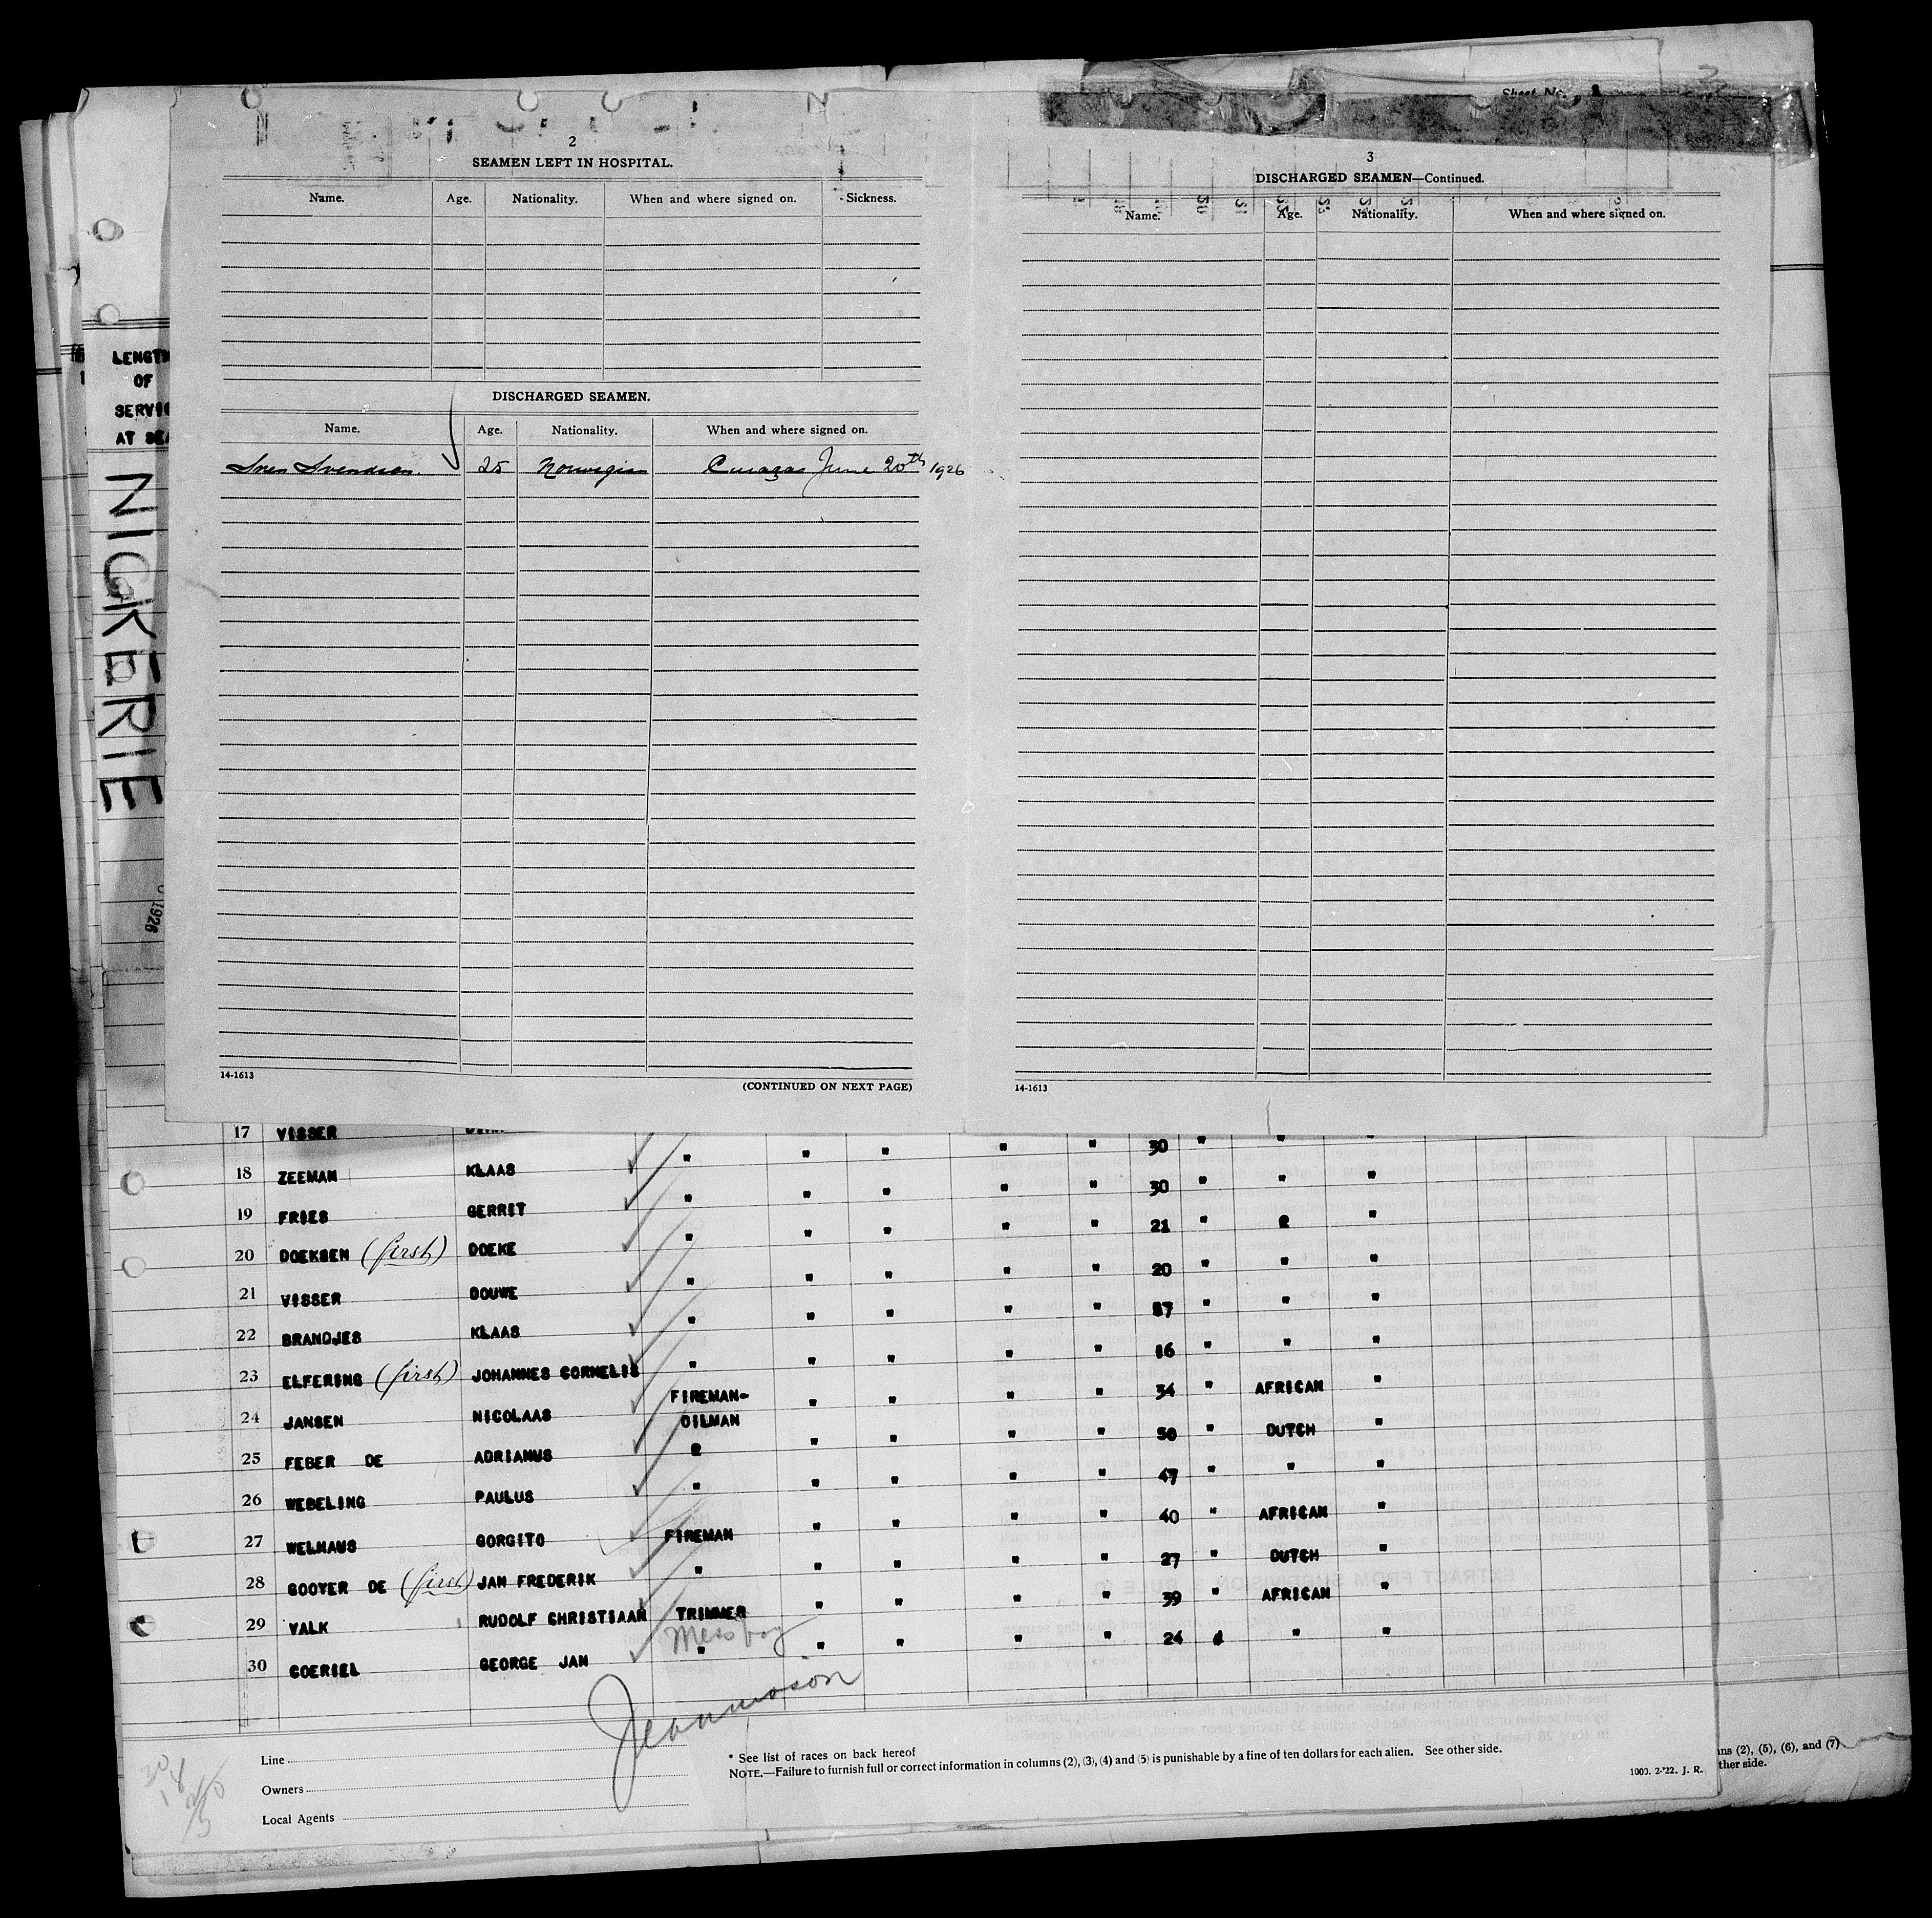 Sheet No.
2
SEAMEN LEFT IN HOSPITAL.
Name. Age. Nationality. When and where signed on. Sickness.
DISCHARGED SEAMEN.
Name. Age. Nationality. When and where signed on.
Sven Svendsen. 25 Norwegian Curaçao June 20th 1926
14-1613
(CONTINUED ON NEXT PAGE)
3
DISCHARGED SEAMEN—Continued.
Name. Age. Nationality. When and where signed on.
14-1613
LENGTH
OF
SERVIC
AT SEA
NICKERIE
1926
17 VISSER " " " " " 30 " " "
18 ZEEMAN KLAAS " " " " " 30 " " "
19 FRIES GERRIT " " " " " 21 " " "
20 DOEKSEN (first) DOEKE " " " " " 20 " " "
21 VISSER DOUWE " " " " " 37 " " "
22 BRANDJES KLAAS " " " " " 16 " " "
23 ELFERING (first) JOHANNES CORNELIS " " " " " 34 " AFRICAN "
24 JANSEN NICOLAAS FIREMAN-OILMAN " " " " 50 " DUTCH "
25 FEBER DE ADRIANUS " " " " " 47 " " "
26 WEBELING PAULUS " " " " " 40 " AFRICAN "
27 WELHAUS GORGITO FIREMAN " " " " 27 " DUTCH "
28 GOOYER DE (first) JAN FREDERIK " " " " " 39 " AFRICAN "
29 VALK RUDOLF CHRISTIAAN TRIMMER " " " " 24 " " "
Mess boy
30 GOERIEL GEORGE JAN "
Line
Owners
Local Agents
* See list of races on back hereof
NOTE.—Failure to furnish full or correct information in columns (2), (3), (4) and (5) is punishable by a fine of ten dollars for each alien. See other side.
1000. 2-'22. J. R.
ns (2), (5), (6), and (7)
ther side.